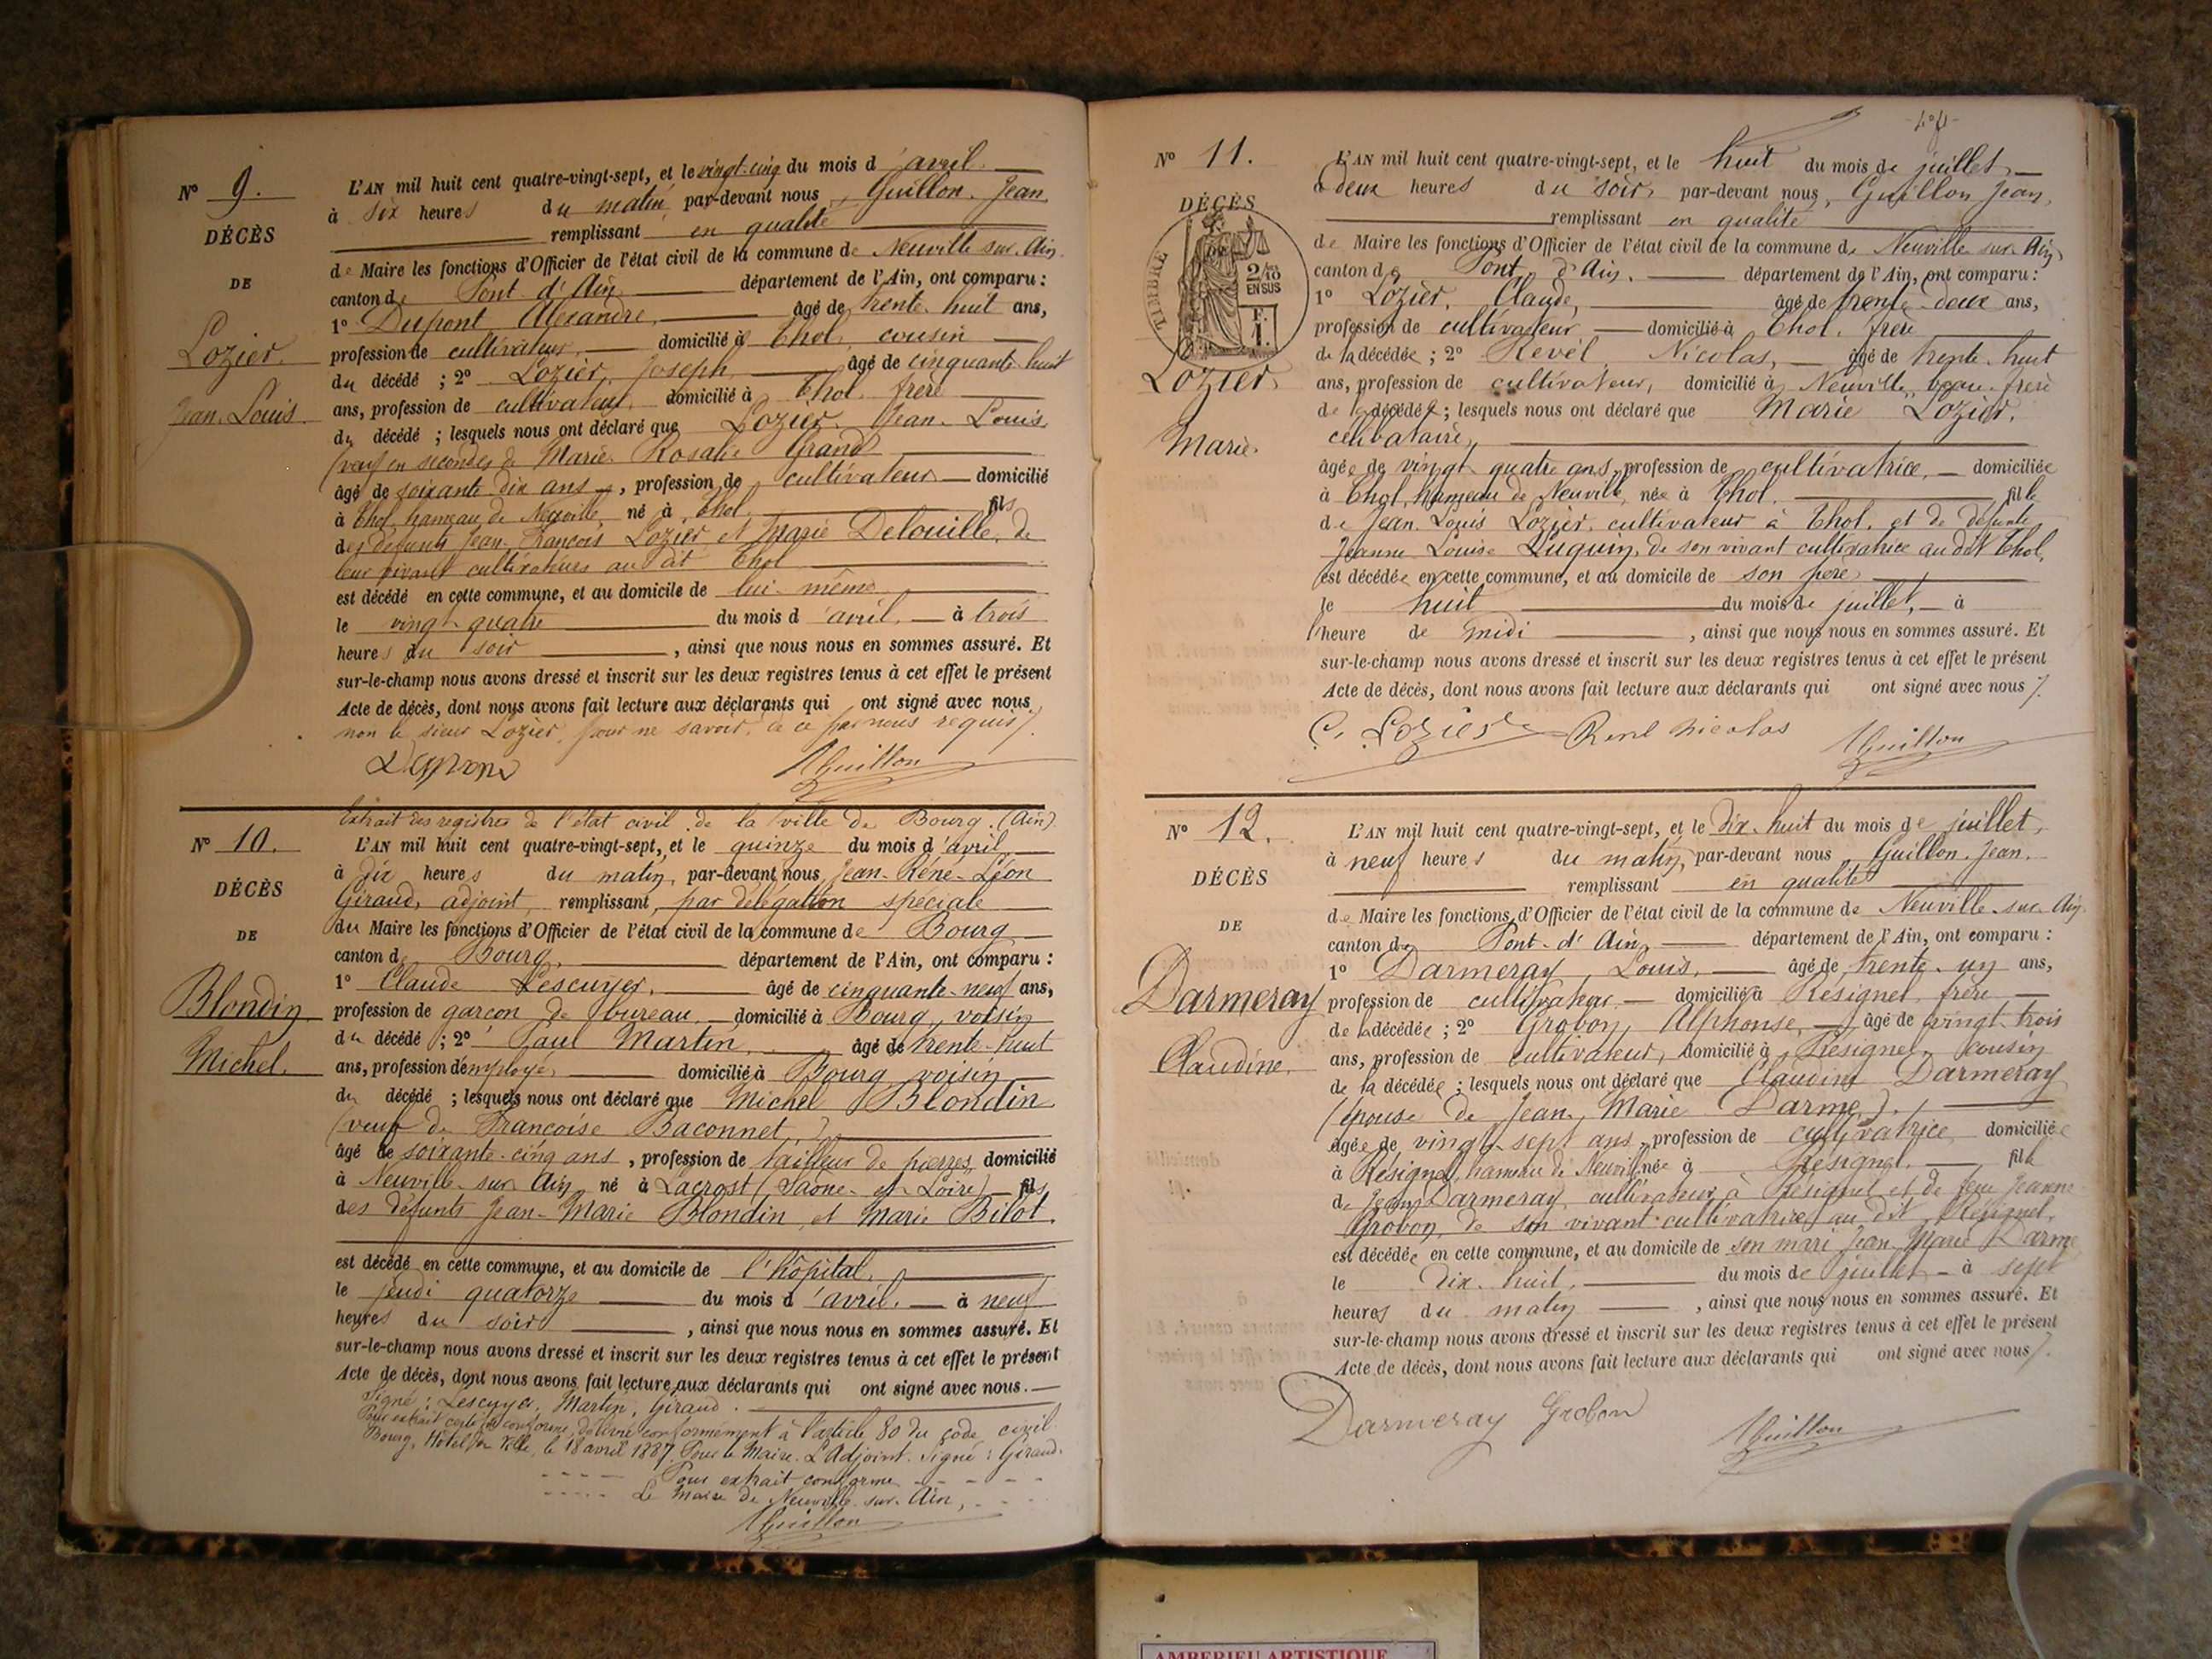 N° 9.
DÉCÈS
DE
Lozier
Jean-Louis.
L'AN mil huit cent quatre-vingt-sept, et le vingt-cinq du mois d'avril
à six heures du matin, par-devant nous, Guillon, Jean,
remplissant en qualité
de Maire les fonctions d'Officier de l'état civil de la commune de Neuville sur Ain,
canton de Pont d'Ain, département de l'Ain, ont comparu :
1° Dupont Alexandre, âgé de trente-huit ans,
profession de cultivateur, domicilié à Thol, cousin
du décédé ; 2° Lozier, Joseph, âgé de cinquante-huit
ans, profession de cultivateur, domicilié à Thol, frère
du décédé ; lesquels nous ont déclaré que Lozier Jean-Louis,
(veuf en secondes de Marie Rosalie Grand
âgé de soixante-dix ans, profession de cultivateur domicilié
à Thol, hameau de Neuville, né à Thol, fils
des défunts Jean-François Lozier et Marie Delouille, de
leur vivant cultivateurs au dit Thol
est décédé en cette commune, et au domicile de lui-même
le vingt-quatre du mois d'avril, à trois
heures du soir, ainsi que nous nous en sommes assuré. Et
sur-le-champ nous avons dressé et inscrit sur les deux registres tenus à cet effet le présent
Acte de décès, dont nous avons fait lecture aux déclarants qui ont signé avec nous
non le sieur Lozier, pour ne savoir, de ce par nous requis.
Dupont Guillon
N° 10.
DÉCÈS
DE
Blondin
Michel.
Extrait des registres de l'état civil de la ville de Bourg. (Ain)
L'AN mil huit cent quatre-vingt-sept, et le quinze du mois d'avril
à dix heures du matin, par-devant nous Jean-Réné-Léon
Giraud, adjoint, remplissant, par délégation spéciale
du Maire les fonctions d'Officier de l'état civil de la commune de Bourg
canton de Bourg, département de l'Ain, ont comparu :
1° Claude Lescuyer, âgé de cinquante-neuf ans,
profession de garçon de bureau, domicilié à Bourg, voisin
du décédé ; 2° Paul Martin, âgé de trente-huit
ans, profession d'employé, domicilié à Bourg, voisin
du décédé ; lesquels nous ont déclaré que Michel Blondin
(veuf de Françoise Baconnet,)
âgé de soixante-cinq ans, profession de tailleur de pierres, domicilié
à Neuville sur Ain, né à Lacrost (Saône-et-Loire) fils
des défunts Jean-Marie Blondin, et Marie Bitot.
est décédé en cette commune, et au domicile de l'hôpital,
le jeudi quatorze du mois d'avril, à neuf
heures du soir, ainsi que nous nous en sommes assuré. Et
sur-le-champ nous avons dressé et inscrit sur les deux registres tenus à cet effet le présent
Acte de décès, dont nous avons fait lecture aux déclarants qui ont signé avec nous.
Signé : Lescuyer, Martin, Giraud.
Pour extrait certifié conforme, délivré conformément à l'article 80 du code civil
Bourg, Hôtel de Ville, le 18 avril 1887. Pour le Maire. L'Adjoint. Signé : Giraud.
Pour extrait conforme
Le Maire de Neuville-sur-Ain,
Guillon
N° 11.
DÉCÈS
TIMBRE
2/10
EN SUS
F.
1.
Lozier,
Marie.
L'AN mil huit cent quatre-vingt-sept, et le huit du mois de juillet,
à deux heures du soir, par-devant nous, Guillon Jean,
remplissant en qualité
de Maire les fonctions d'Officier de l'état civil de la commune de Neuville-sur-Ain,
canton de Pont d'Ain, département de l'Ain, ont comparu :
1° Lozier, Claude, âgé de trente-deux ans,
profession de cultivateur domicilié à Thol, frère
de la décédée ; 2° Revel Nicolas, âgé de trente-huit
ans, profession de cultivateur, domicilié à Neuville, beau-frère
de la décédée ; lesquels nous ont déclaré que Marie Lozier,
célibataire,
âgée de vingt-quatre ans, profession de cultivatrice, domiciliée
à Thol, hameau de Neuville, née à Thol, fille
de Jean-Louis Lozier, cultivateur à Thol, et de défunte
Jeanne Louise Duquin, de son vivant cultivatrice au dit Thol,
est décédée en cette commune, et au domicile de son père
le huit du mois de juillet, à
l'heure de midi, ainsi que nous nous en sommes assuré. Et
sur-le-champ nous avons dressé et inscrit sur les deux registres tenus à cet effet le présent
Acte de décès, dont nous avons fait lecture aux déclarants qui ont signé avec nous.
C. Lozier Revel Nicolas Guillon
N° 12.
DÉCÈS
DE
Darmeray
Claudine.
L'AN mil huit cent quatre-vingt-sept, et le dix-huit du mois de juillet,
à neuf heures du matin, par-devant nous Guillon Jean,
remplissant en qualité
de Maire les fonctions d'Officier de l'état civil de la commune de Neuville-sur-Ain,
canton de Pont-d'Ain, département de l'Ain, ont comparu :
1° Darmeray Louis, âgé de trente-un ans,
profession de cultivateur domicilié à Résignel, frère
de la décédée ; 2° Grobon, Alphonse, âgé de vingt-trois
ans, profession de cultivateur, domicilié à Résignel, cousin
de la décédée ; lesquels nous ont déclaré que Claudine Darmeray
(épouse de Jean-Marie Darme).
âgée de vingt-sept ans, profession de cultivatrice domiciliée
à Résignel, hameau de Neuville née à Résignel, fille
de Jean Darmeray, cultivateur à Résignel et de feue Jeanne
Grobon, de son vivant cultivatrice au dit Résignel,
est décédée en cette commune, et au domicile de son mari Jean-Marie Darme
le dix-huit, du mois de juillet à sept
heures du matin, ainsi que nous nous en sommes assuré. Et
sur-le-champ nous avons dressé et inscrit sur les deux registres tenus à cet effet le présent
Acte de décès, dont nous avons fait lecture aux déclarants qui ont signé avec nous.
Darmeray Grobon Guillon
AMBERIEU ARTISTIQUE